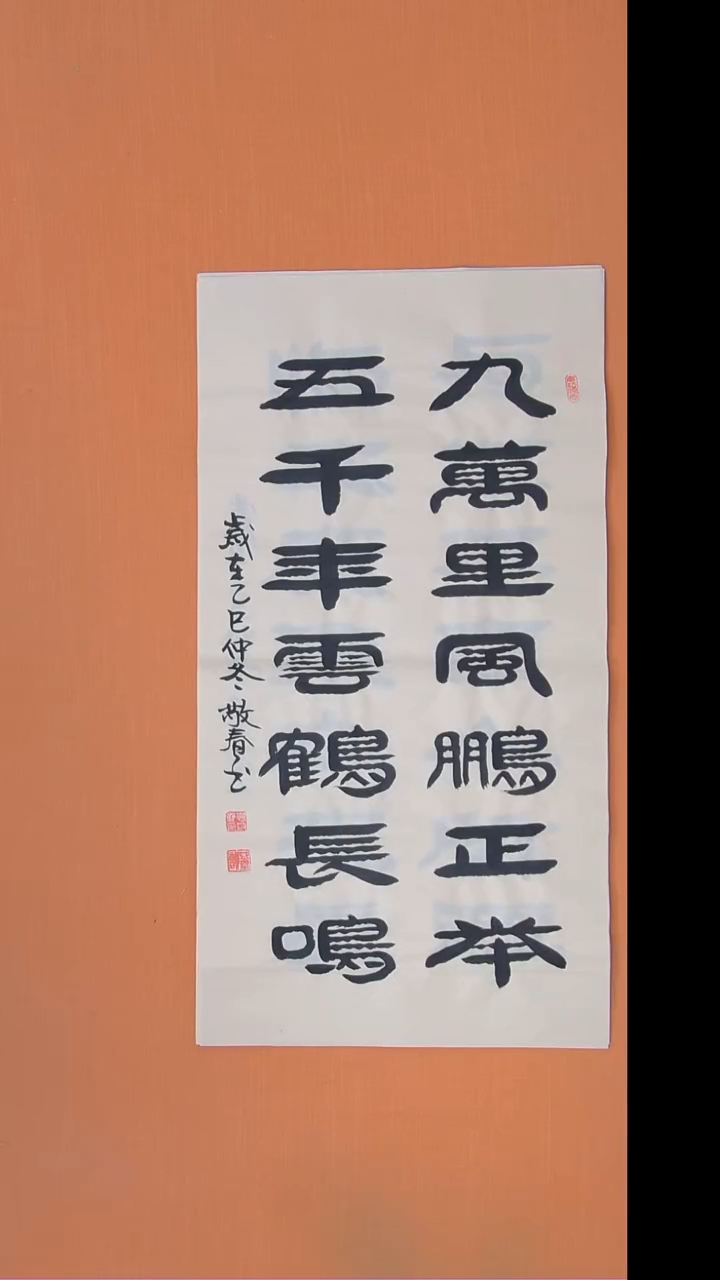 九萬里風鵬正举
五千年雲鶴長鳴
歲在乙巳仲冬敬春书